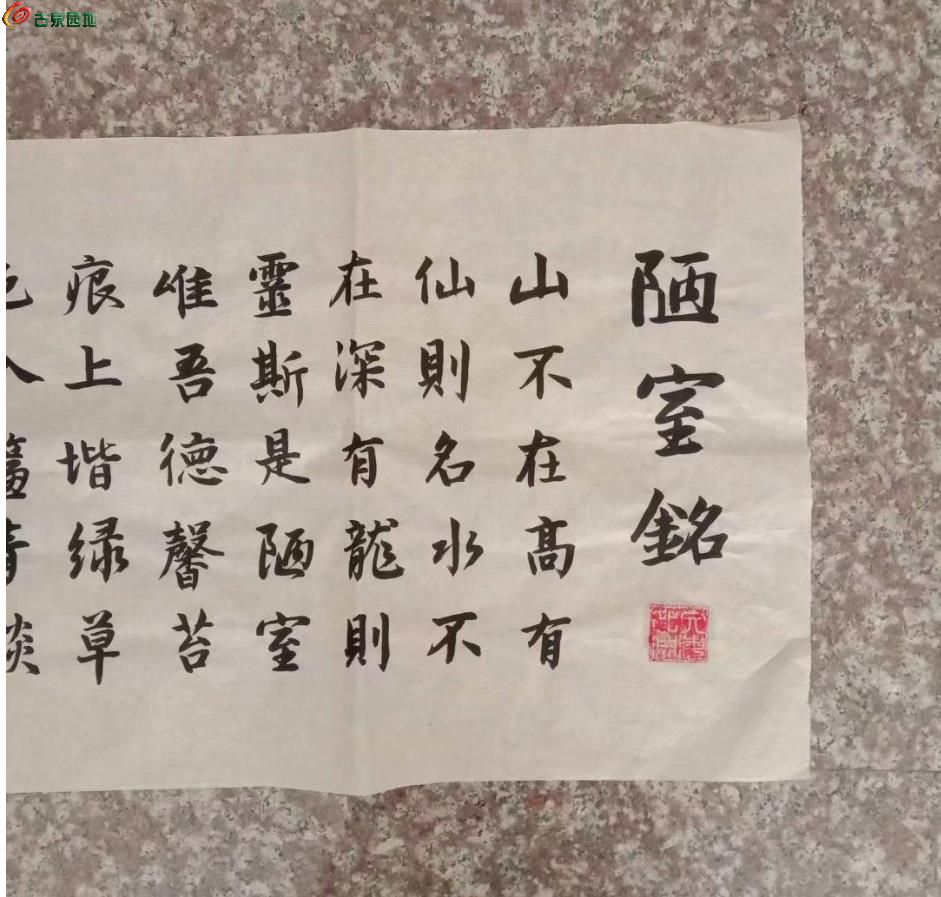 古泉园地
陋室銘
山不在髙有
仙則名水不
在深有龍則
靈斯是陋室
唯吾德馨苔
痕上堦绿草